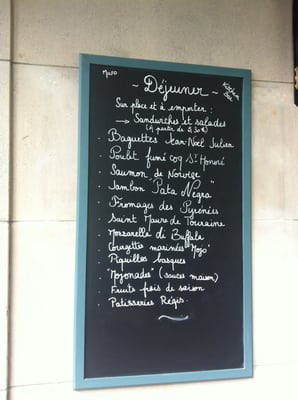 Mozo
Kitchen
Bar
~ Déjeuner ~
Sur place et à emporter :
→ Sandwiches et salades
(A partir de 5,30€)
Baguettes Jean-Noël Julien
Poulet fumé Coq St Honoré
Saumon de Norvège
Jambon "Pata Negra"
Fromages des Pyrénées
Saint Maure de Touraine
Mozzarella di Buffala
Courgettes marinées "Mojo"
Piquillos basques
"Moyonades" (sauces maison)
Fruits frais de saison
Patisseries Régis.